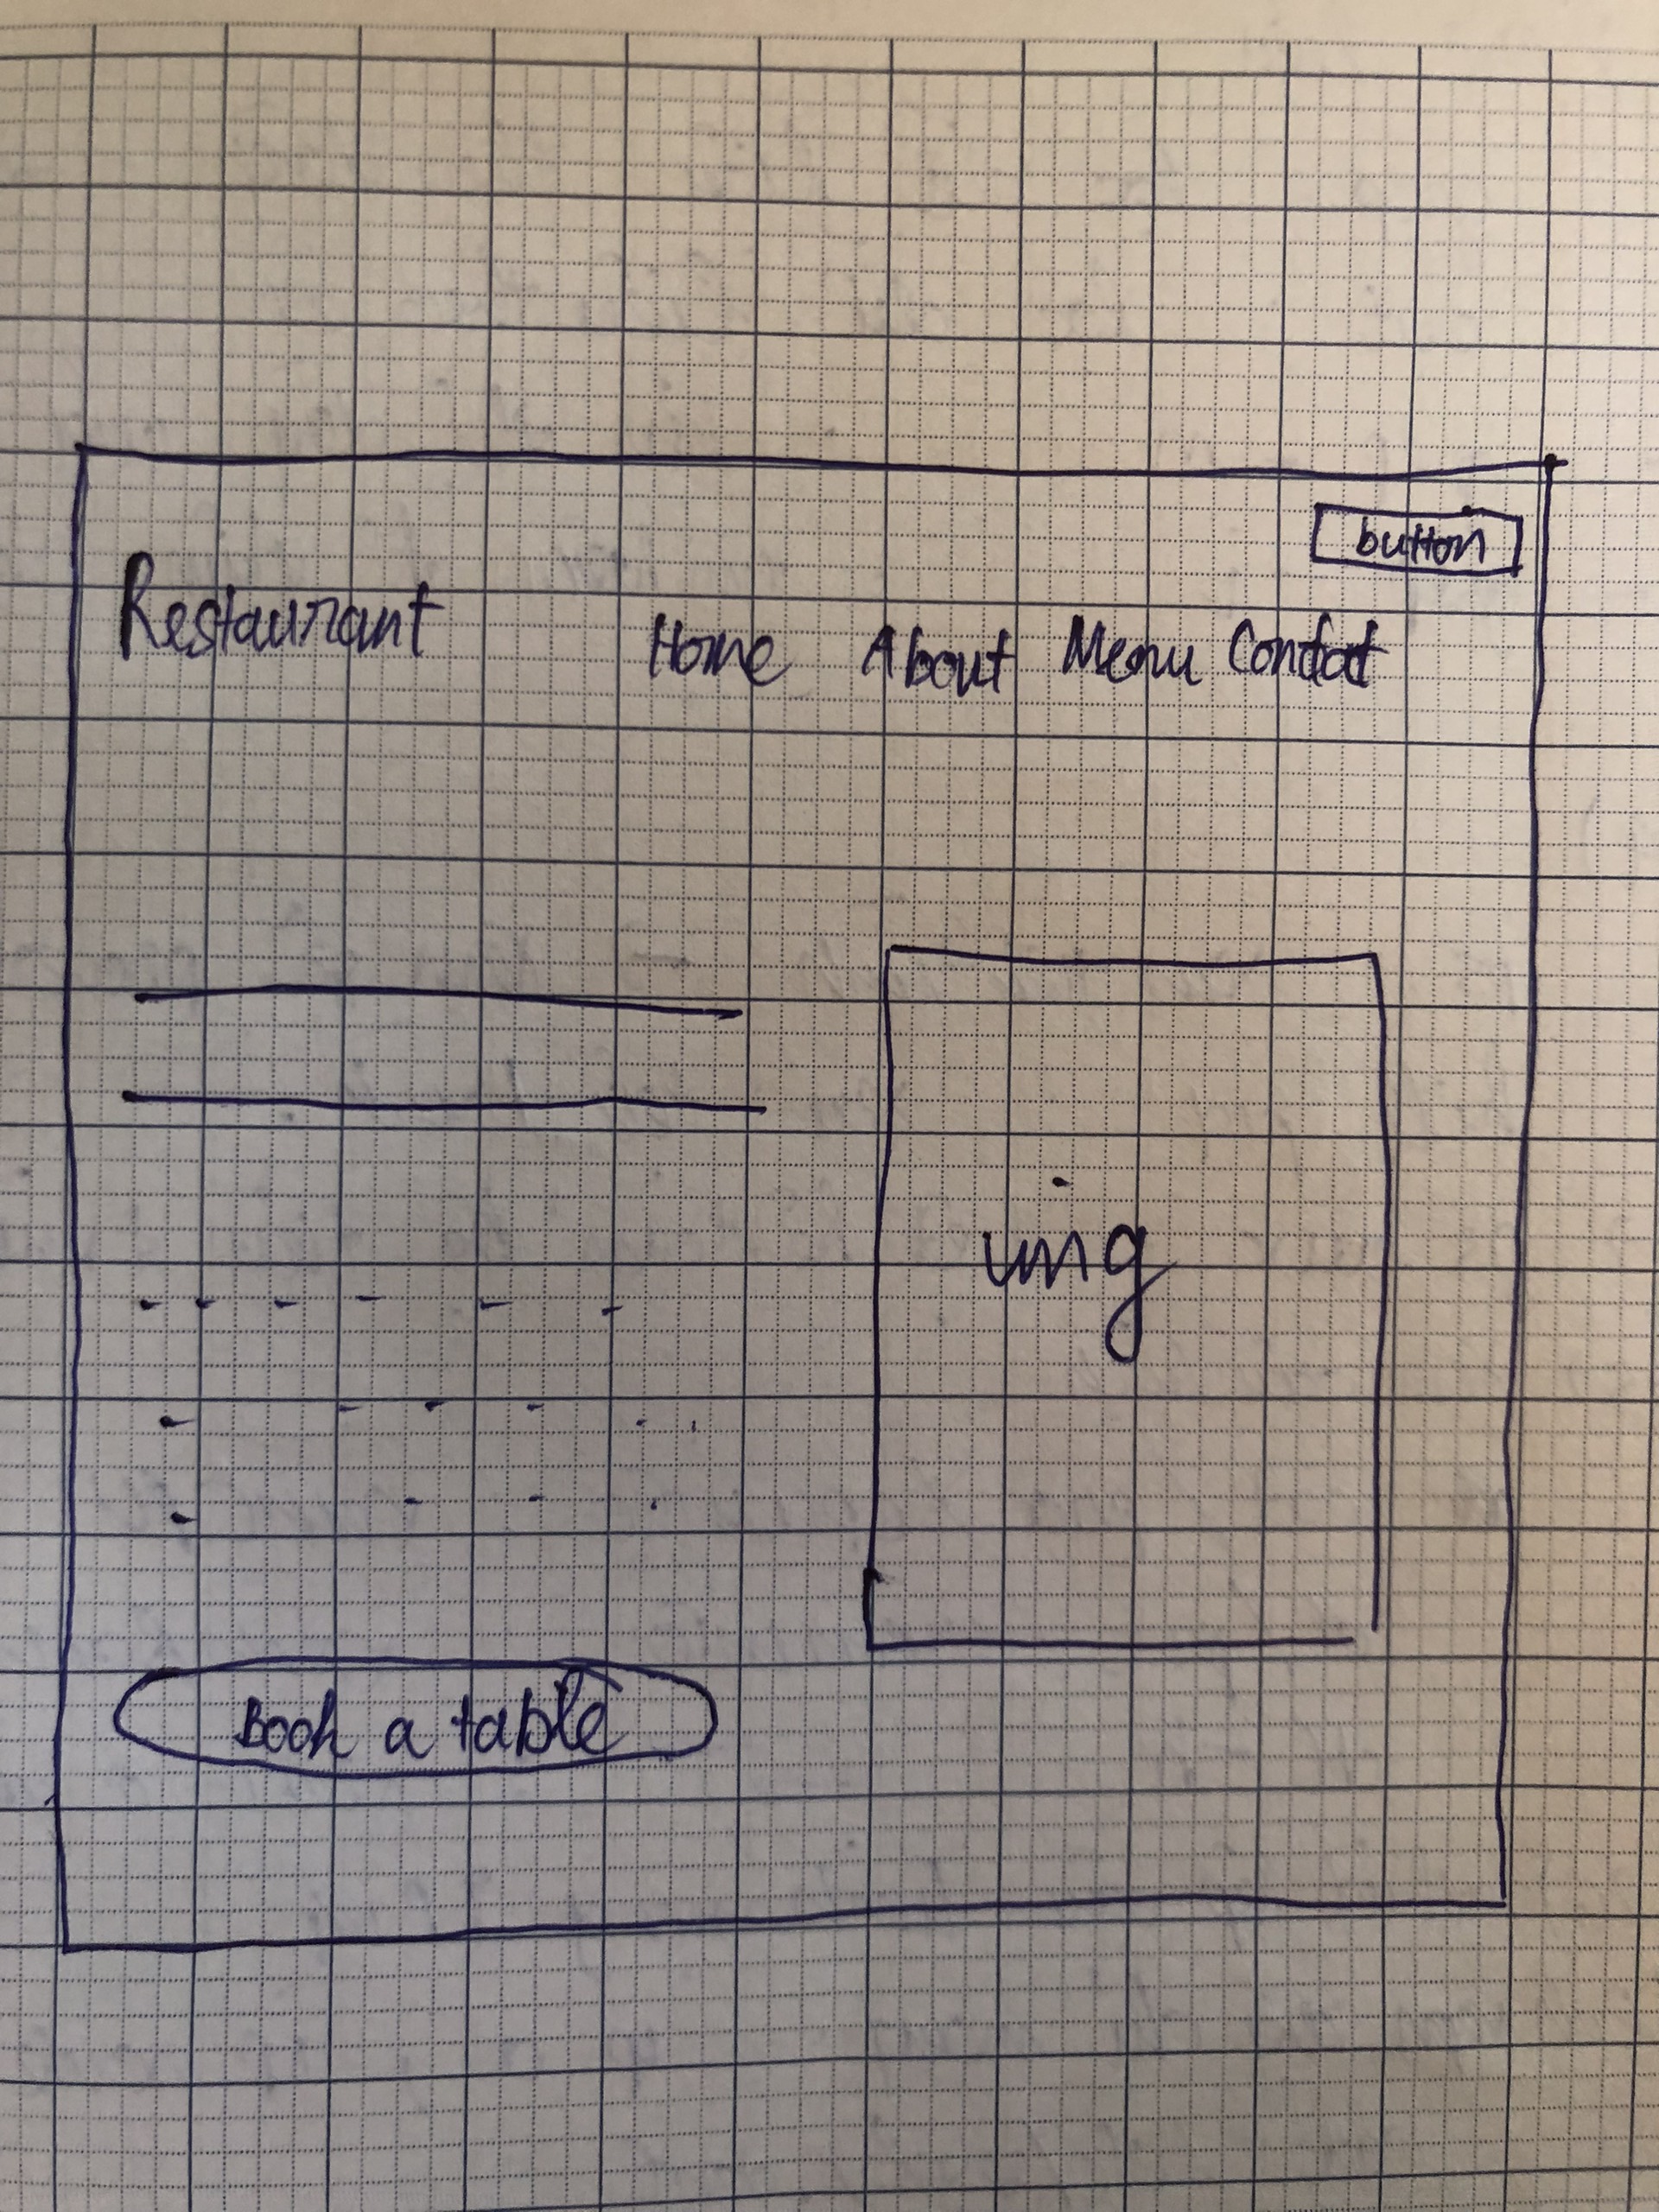 button
Restaurant Home About Menu Contact
img
Book a table